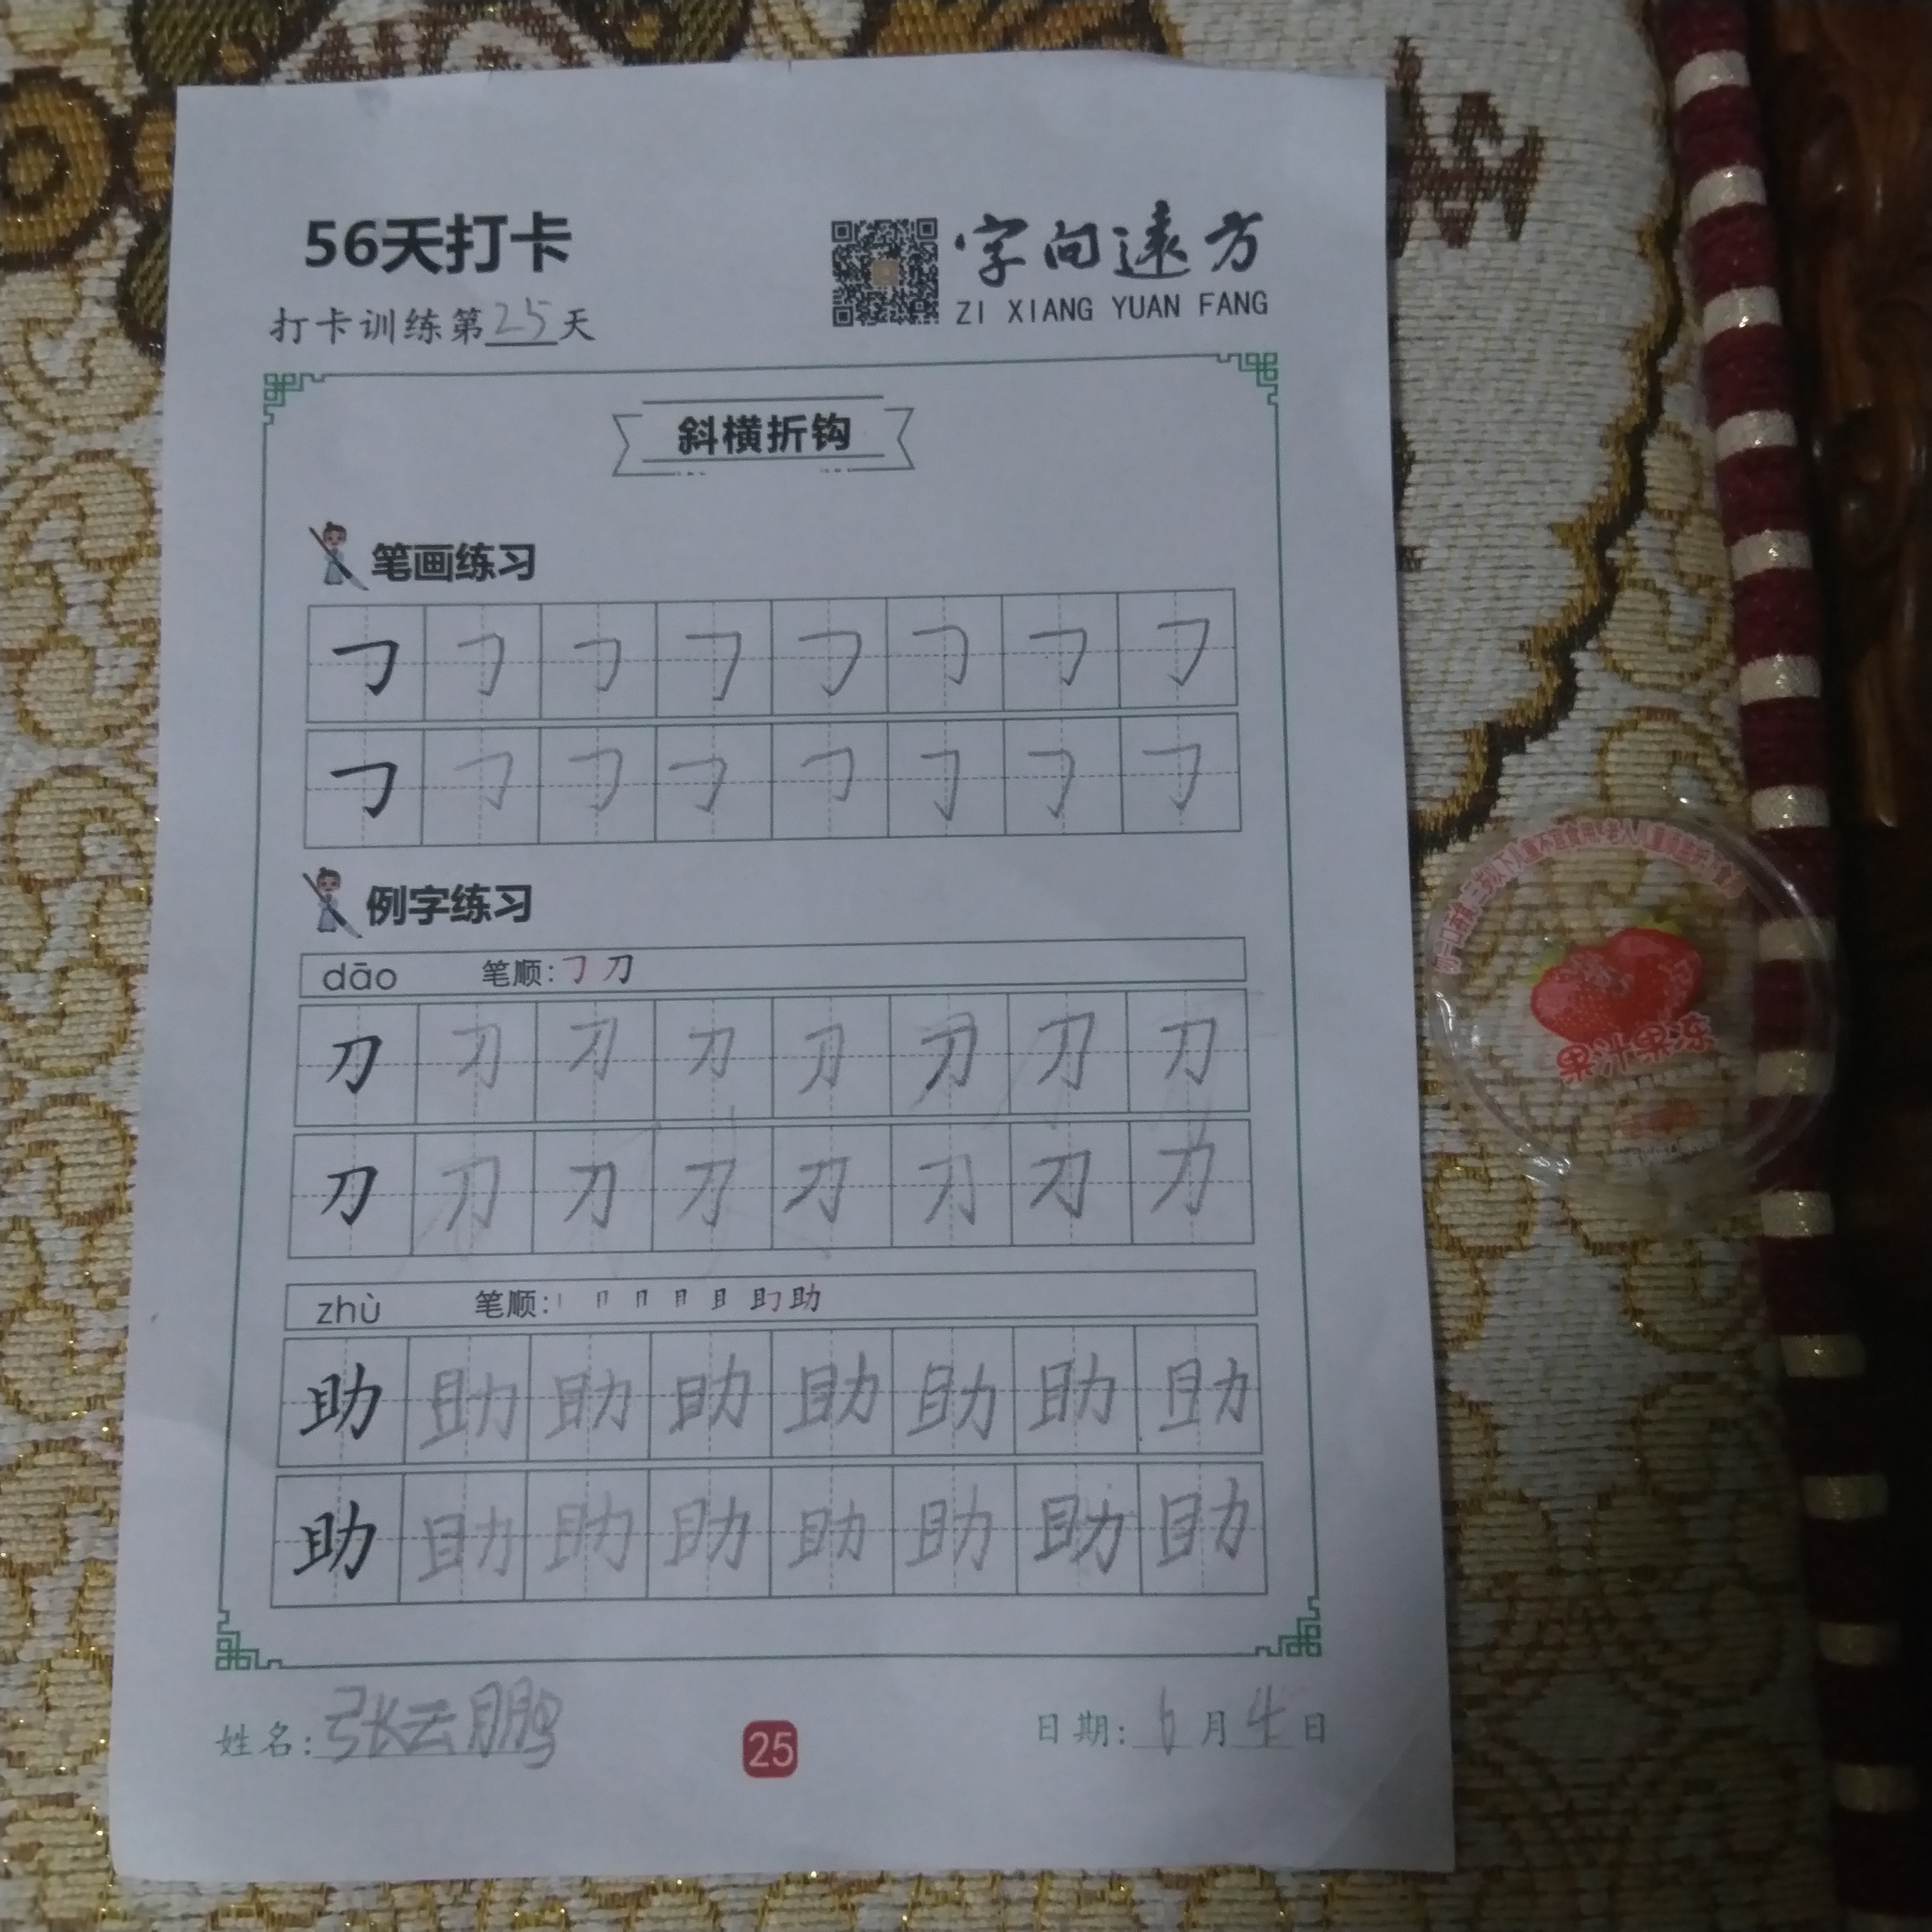 56天打卡
字向遠方
ZI XIANG YUAN FANG
打卡训练第25天
斜横折钩
笔画练习
㇆ ㇆ ㇆ ㇆ ㇆ ㇆ ㇆ ㇆
㇆ ㇆ ㇆ ㇆ ㇆ ㇆ ㇆ ㇆
例字练习
dāo 笔顺:㇆ 刀
刀 刀 刀 刀 刀 刀 刀 刀
刀 刀 刀 刀 刀 刀 刀 力
zhù 笔顺: 助
助 助 助 助 助 助 助 助
助 助 助 助 助 助 助 助
姓名:张云鹏
25
日期:6月4日
果汁果冻